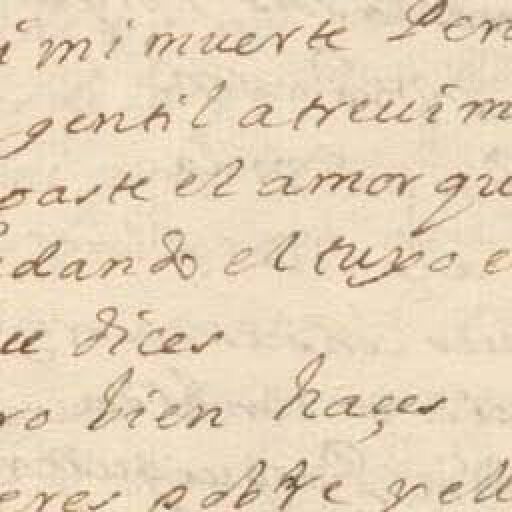 i mi muerte Pen
gentil atreuim
oaste el amor qu
edando el tuyo e
ue dices
ro bien haçes
eres pobre y ell